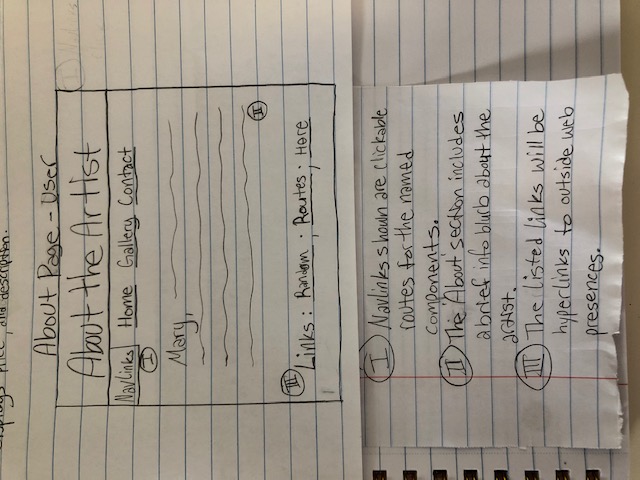 Displays Price, and description.
About Page - User
About the Artist
NavLinks Home Gallery Contact
I
Mary,
II
III Links : Random ; Routes ; Here
I Navlinks shown are clickable
routes for the named
components.
II The 'About' section includes
a brief info blurb about the
artist.
III The listed links will be
hyperlinks to outside web
presences.